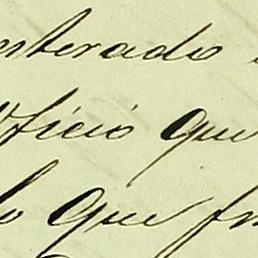 nterado
oficio que
lo que